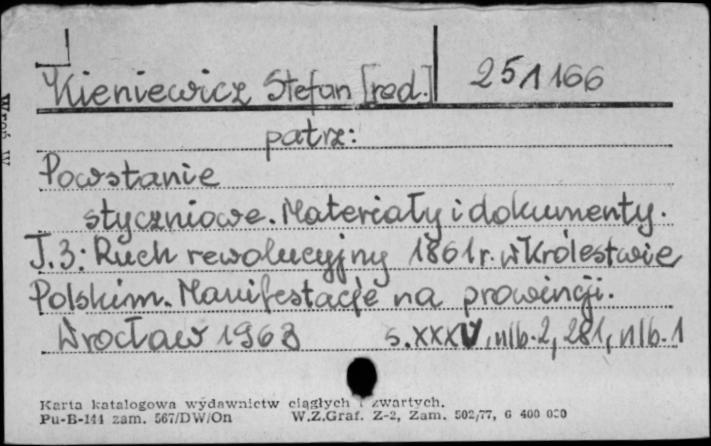 Kieniewicz Stefan [red.] 251166
patrz:
Powstanie
styczniowe. Materiały i dokumenty.
T.3: Ruch rewolucyjny 1861 r. w Królestwie
Polskim. Manifestacje na prowincji.
Wrocław 1963 s. XXXV, nlb. 2, 281, nlb. 1
Karta katalogowa wydawnictw ciągłych i zwartych.
Pu-B-144 zam. 567/DW/On W.Z.Graf. Z-2, Zam. 502/77, 6 400 000